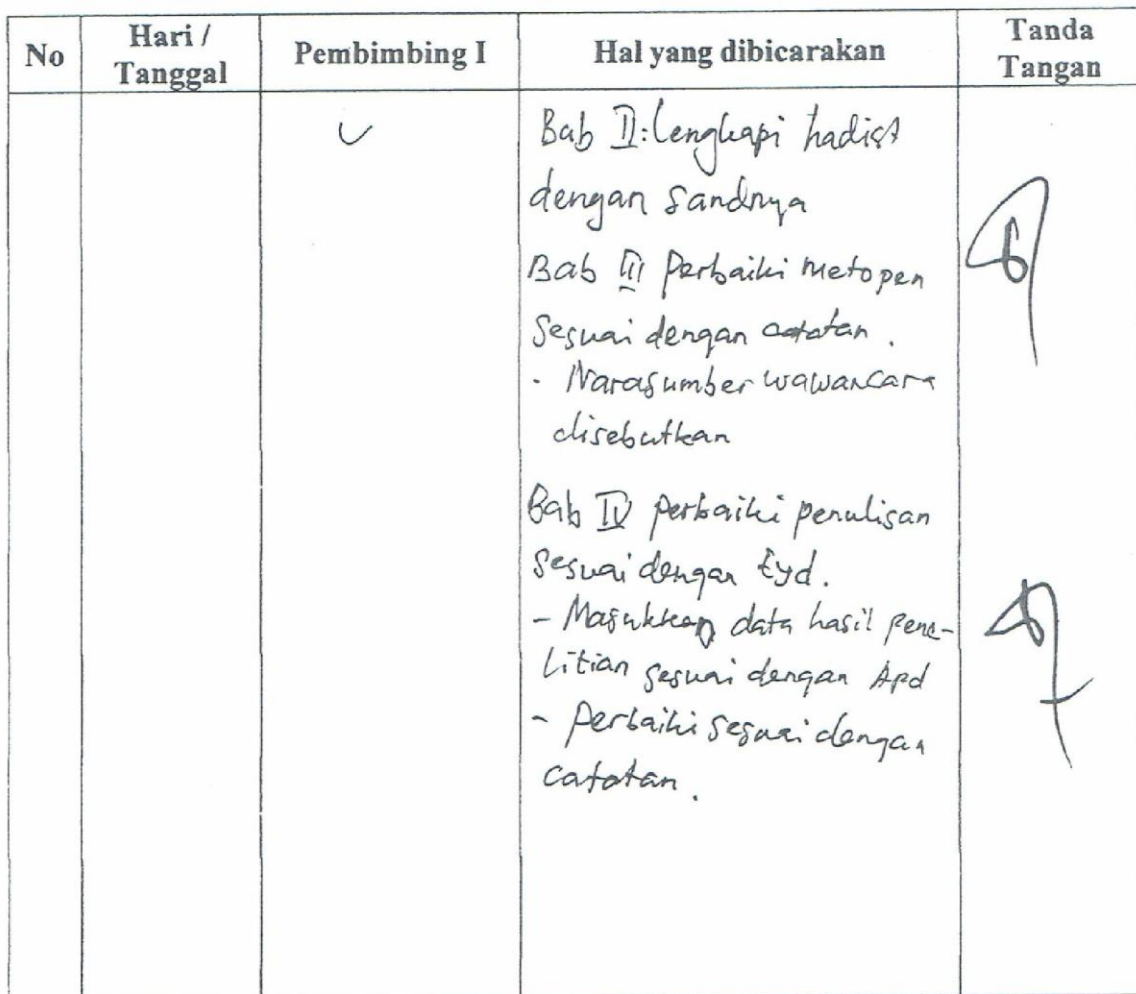 No Hari / Tanggal Pembimbing I Hal yang dibicarakan Tanda Tangan
Bab II: Lengkapi hadist
dengan sandnya
Bab III Perbaiki metopen
sesuai dengan catatan.
- Narasumber wawancara
disebutkan
Bab IV perbaiki penulisan
sesuai dengan Eyd.
- Masukkan data hasil pene-
litian sesuai dengan Apd
- Perbaiki sesuai dengan
catatan.